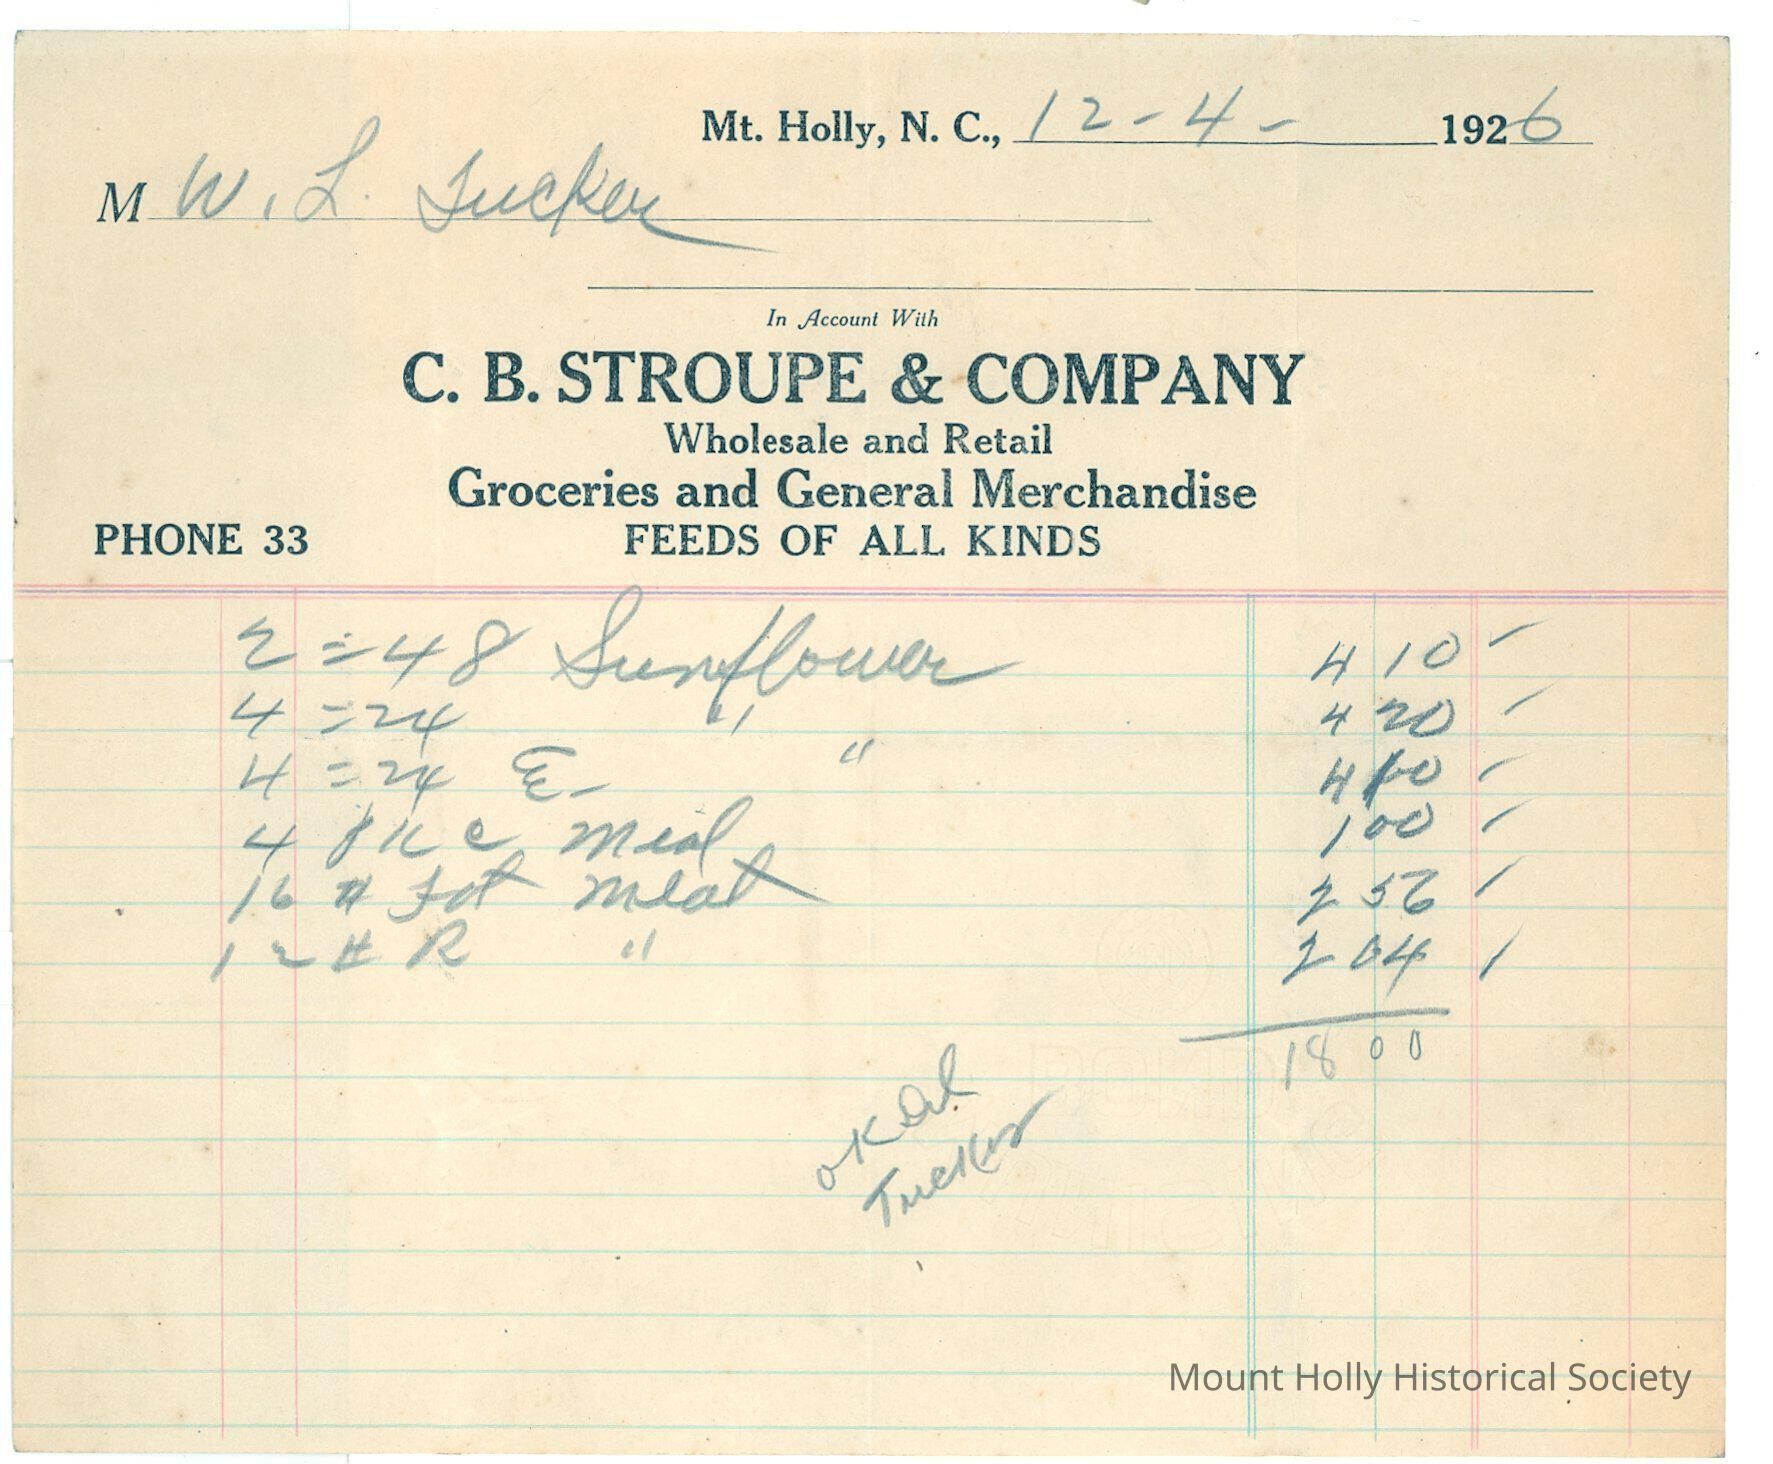 Mt. Holly, N. C., 12-4- 1926
M W. L. Tucker
In Account With
C. B. STROUPE & COMPANY
Wholesale and Retail
Groceries and General Merchandise
PHONE 33 FEEDS OF ALL KINDS
2 = 48 Sunflower 4 10
4 = 24 " 4 20
4 = 24 E- " 4 10
4 Meal 1 00
16 # Fat Meat 2 56
12 # R " 2 04
18 00
OK
Tucker
Mount Holly Historical Society